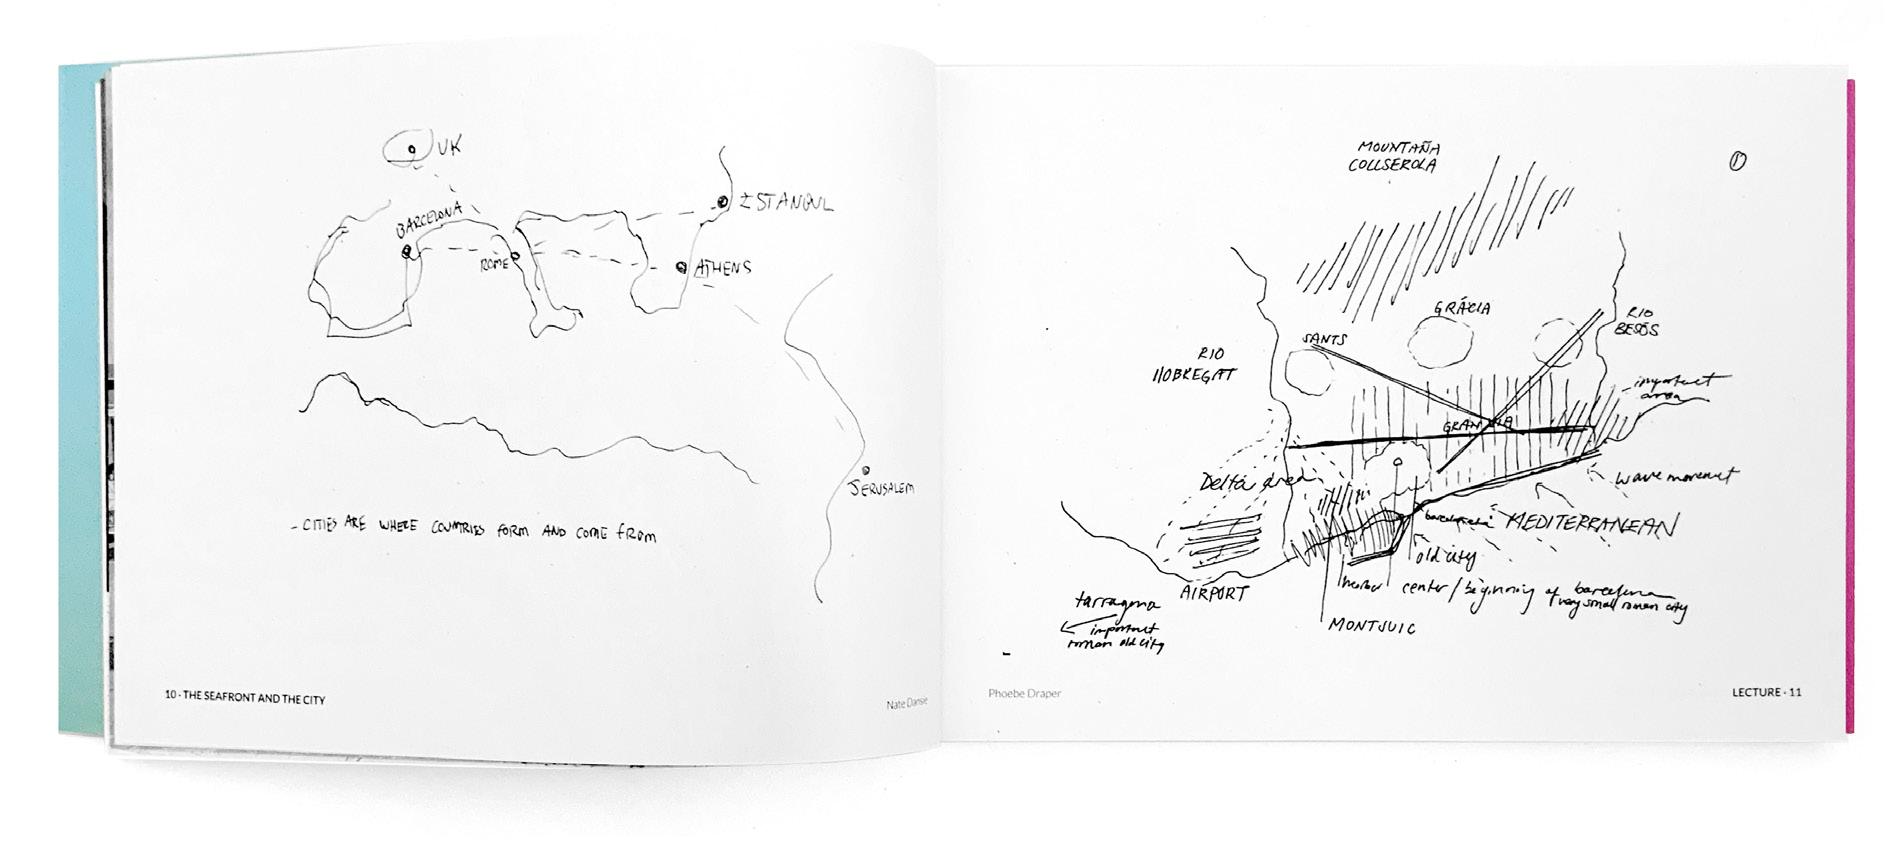 UK
BARCELONA
ROME
ISTANBUL
ATHENS
JERUSALEM
- CITIES ARE WHERE COUNTRIES FORM AND COME FROM
10 · THE SEAFRONT AND THE CITY
Nate Dansie
MOUNTAÑA
COLLSEROLA
1
GRÁCIA
SANTS
RIO
BESÓS
RIO
llOBREGAT
important
area
GRAN VIA
Delta area
wave movement
barceloneta
MEDITERRANEAN
old city
harbor
center / beginning of barcelona
very small roman city
AIRPORT
MONTJUIC
tarragona
important
roman old city
Phoebe Draper
LECTURE · 11